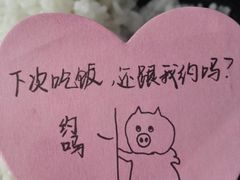 下次吃饭,还跟我约吗?
约吗